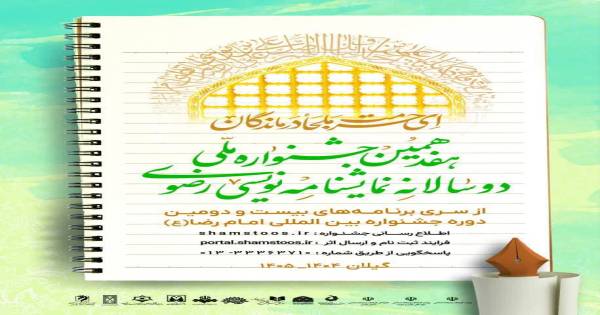 ای حرمت ملجأ درماندگان
هفدهمین جشنواره ملّی
دو سالانه نمایشنامه‌نویسی رضوی
از سری برنامه‌های بیست و دومین
دوره جشنواره بین المللی امام رضا(ع)
اطلاع رسانی جشنواره : shamstoos.ir
فرایند ثبت نام و ارسال اثر : portal.shamstoos.ir
پاسخگویی از طریق شماره : ۰۱۳-۳۳۳۶۳۷۱۰
گیلان ۱۴۰۴-۱۴۰۵